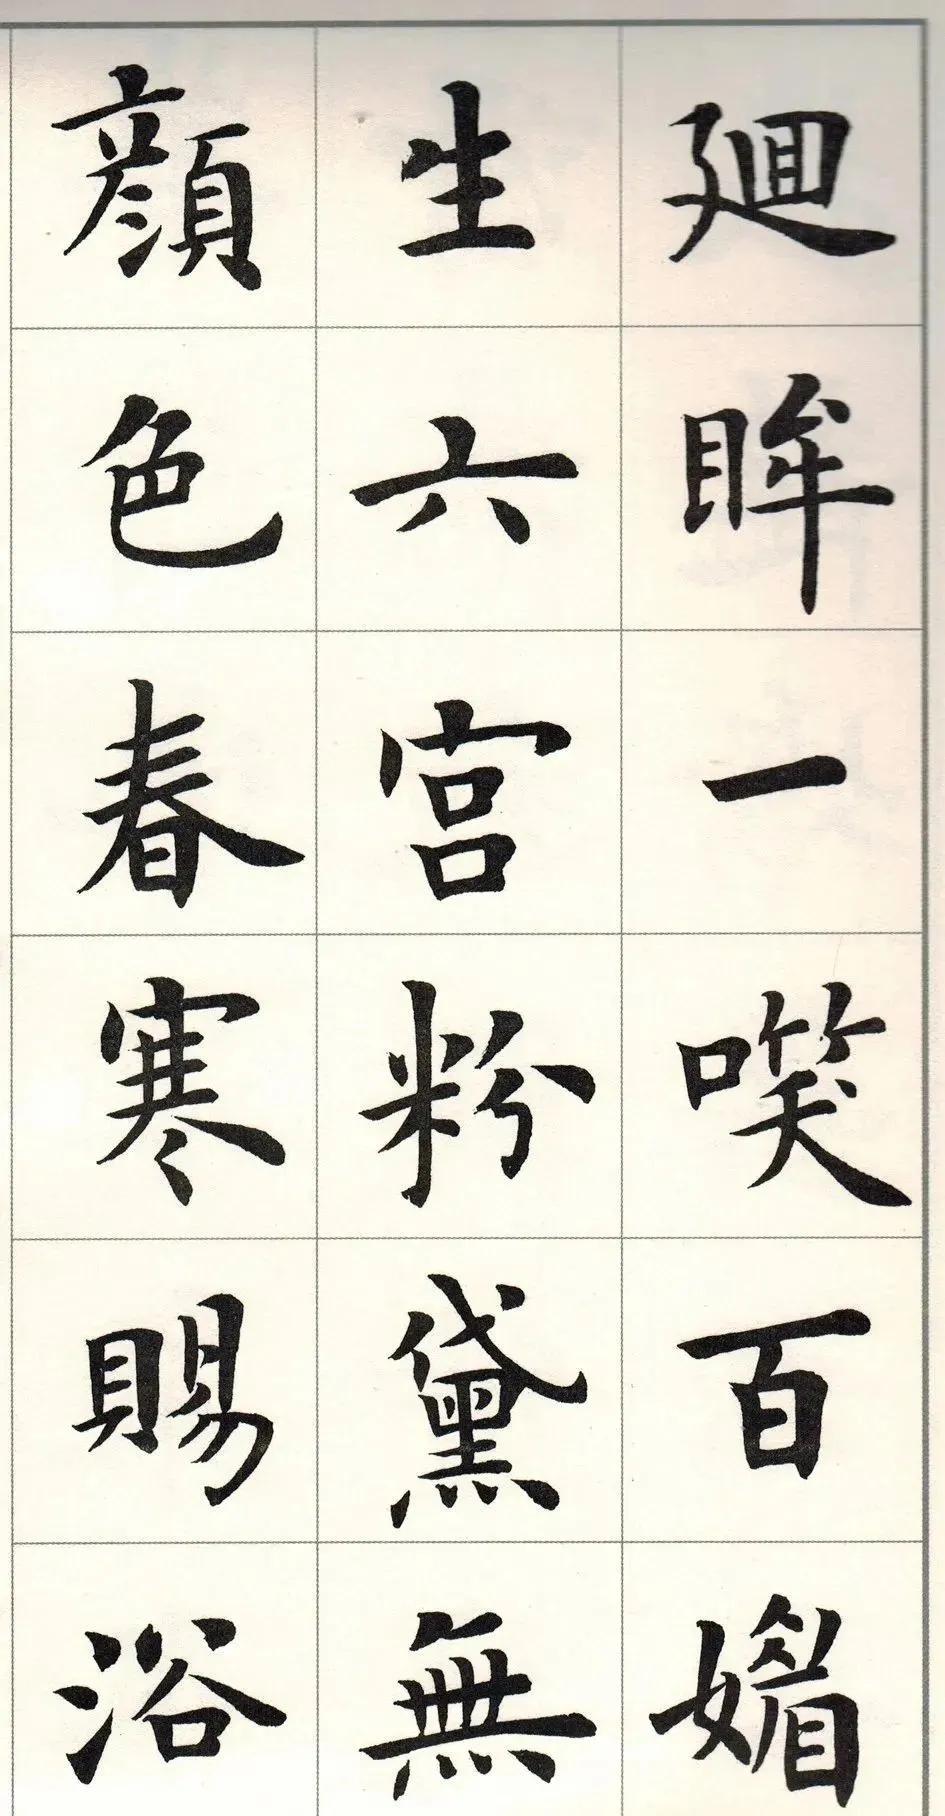 廻眸一㗛百媚
生六宫粉黛無
顔色春寒賜浴